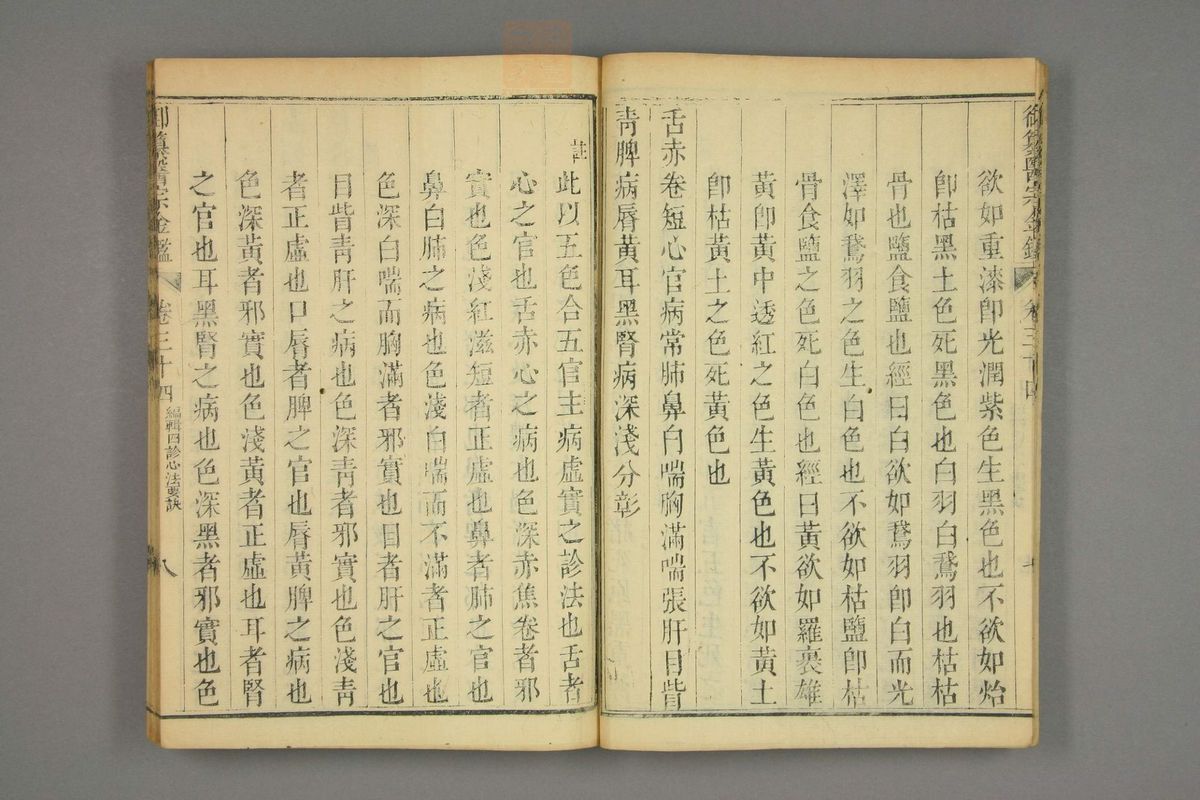 御纂醫宗金鑑
卷三十四
七
欲如重漆卽光潤紫色生黑色也不欲如炲
卽枯黑土色死黑色也白羽白鵞羽也枯枯
骨也鹽食鹽也經曰白欲如鵞羽卽白而光
澤如鵞羽之色生白色也不欲如枯鹽卽枯
骨食鹽之色死白色也經曰黃欲如羅裹雄
黃卽黃中透紅之色生黃色也不欲如黃土
卽枯黃土之色死黃色也
舌赤卷短心官病常肺鼻白喘胸滿喘張肝目眥
靑脾病唇黃耳黑腎病深淺分彰
註
此以五色合五官主病虛實之診法也舌者
心之官也舌赤心之病也色深赤焦卷者邪
實也色淺紅滋短者正虛也鼻者肺之官也
鼻白肺之病也色淺白喘而不滿者正虛也
色深白喘而胸滿者邪實也目者肝之官也
目眥靑肝之病也色深靑者邪實也色淺靑
者正虛也口唇者脾之官也唇黃脾之病也
色深黃者邪實也色淺黃者正虛也耳者腎
之官也耳黑腎之病也色深黑者邪實也色
御纂醫宗金鑑
卷三十四
編輯四診心法要訣
八